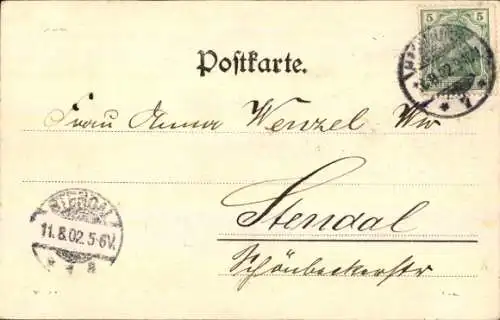 5
Postkarte.
Frau Anna Wenzel Ww
Stendal
STENDAL
11.8.02.5-6V.
Schönbeckerstr